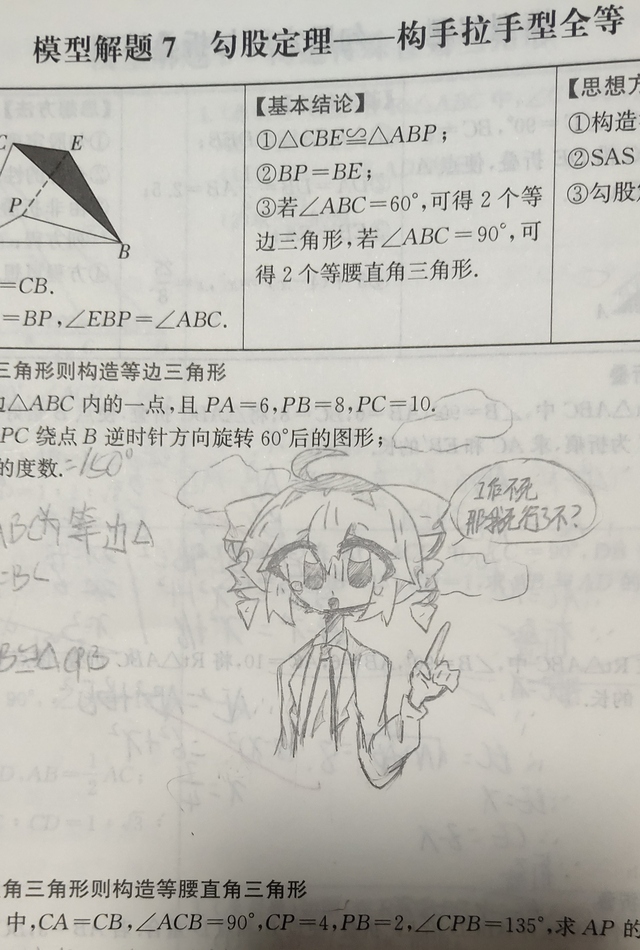 模型解题7 勾股定理——构手拉手型全等
C
E
P
B
=CB.
=BP,∠EBP=∠ABC.
【基本结论】
①△CBE≌△ABP;
②BP=BE;
③若∠ABC=60°,可得2个等
边三角形,若∠ABC=90°,可
得2个等腰直角三角形.
【思想方
①构造
②SAS
③勾股
三角形则构造等边三角形
△ABC内的一点,且PA=6,PB=8,PC=10.
PC绕点B逆时针方向旋转60°后的图形;
的度数.=150°
ABC为等边△
=BC
工作不死
那我先行了不?
角三角形则构造等腰直角三角形
中,CA=CB,∠ACB=90°,CP=4,PB=2,∠CPB=135°,求AP的